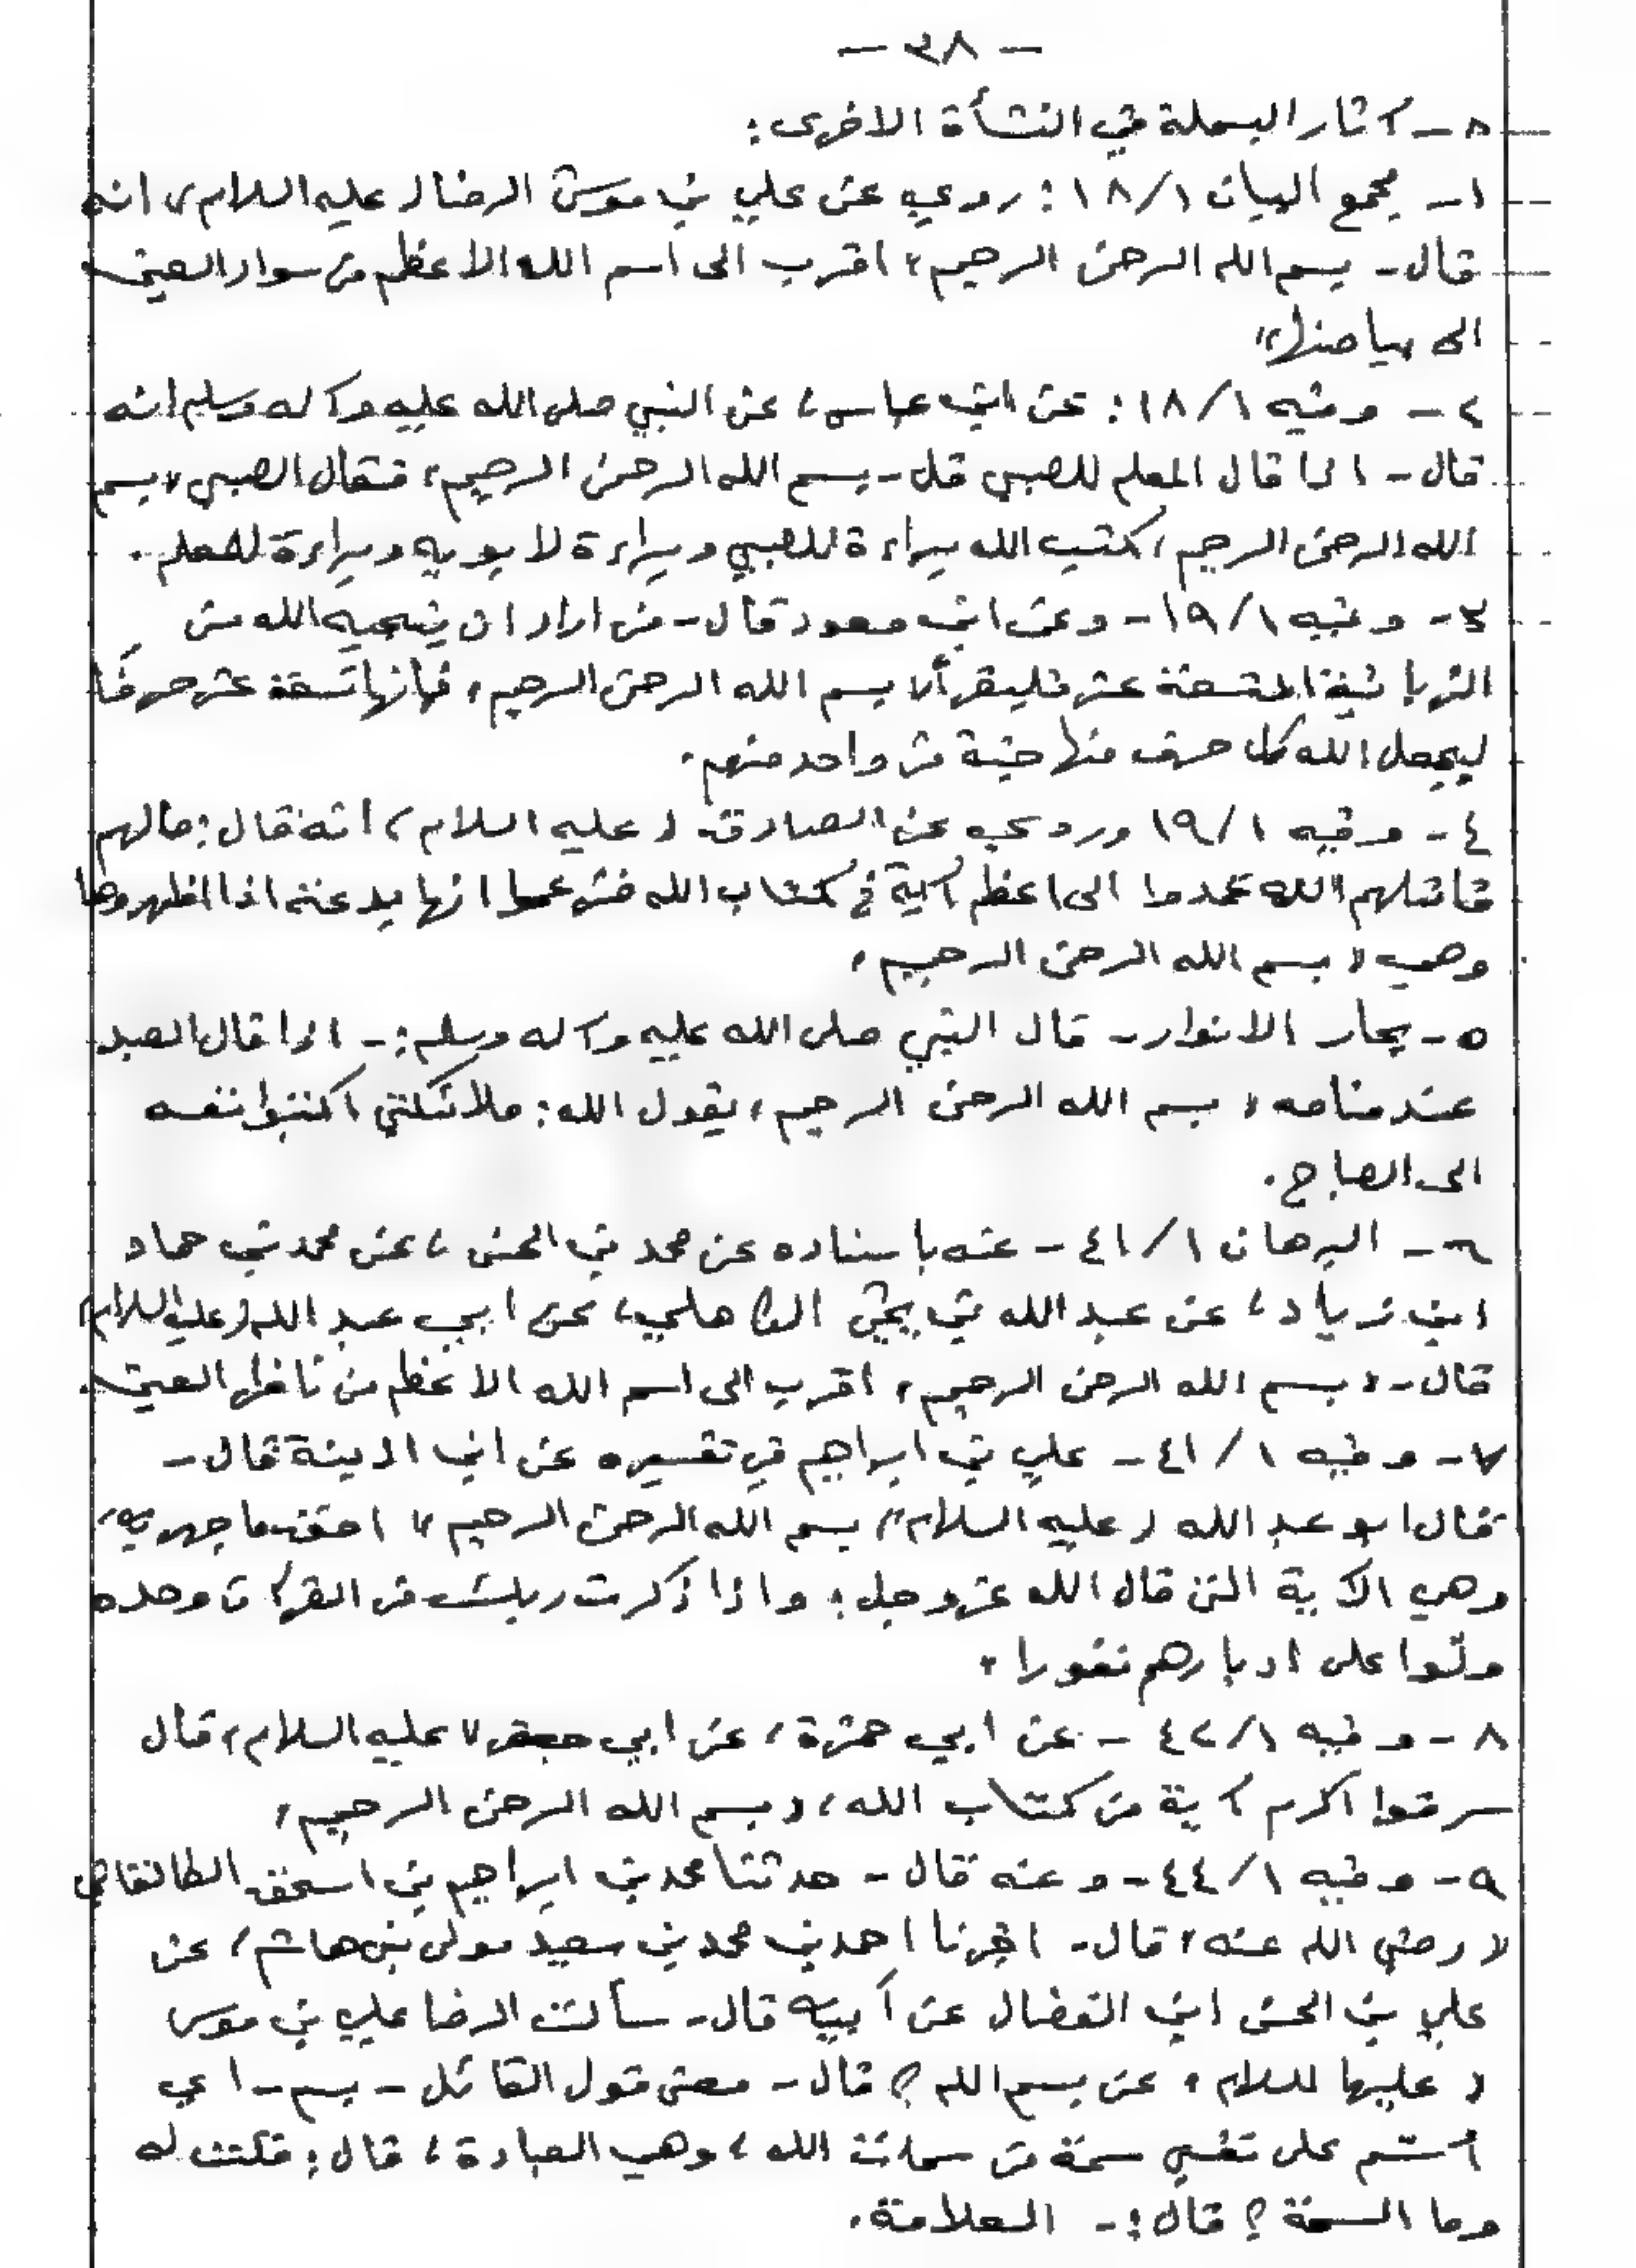 - ٣٨ -
٥ - آثار البسملة في النشأة الاخرى:
١- مجمع البيان ١/١٨: روي عن علي بن موسى الرضا (عليه السلام) انه
قال - بسم الله الرحمن الرحيم، اقرب الى اسم الله الاعظم من سواد العين
الى بياضها"
٢ - وفيه ١/١٨: عن ابن عباس، عن النبي صلى الله عليه وآله وسلم انه
قال - اذا قال المعلم للصبي قل - بسم الله الرحمن الرحيم، فقال الصبي، بسم
الله الرحمن الرحيم، كتب الله براءة للصبي وبراءة لابويه وبراءة للمعلم.
٣ - وفيه ١/١٩ - وعن ابن مسعود قال - من اراد ان ينجيه الله من
الزبانية التسعة عشر فليقرأ، بسم الله الرحمن الرحيم، فإنها تسعة عشر حرفًا
ليجعل الله كل حرف منها جنة من واحد منهم.
٤ - وفيه ١/١٩ وروي عن الصادق (عليه السلام) انه قال: مالهم
قاتلهم الله عمدوا الى اعظم آية في كتاب الله فزعموا انها بدعة اذا اظهروها
وهي «بسم الله الرحمن الرحيم،
٥ - بحار الانوار - قال النبي صلى الله عليه وآله وسلم: - اذا قال العبد
عند منامه، بسم الله الرحمن الرحيم، يقول الله: ملائكتي اكتبوا نفسه
الى الصباح.
٦ - البرهان ١/٤١ - عنه باسناده عن محمد بن الحسن، عن محمد بن حماد
ابن زياد، عن عبد الله بن يحيى الكاهلي، عن ابي عبد الله (عليه السلام)
قال - «بسم الله الرحمن الرحيم، اقرب الى اسم الله الاعظم من ناظر العين.
٧ - وفيه ١/٤١ - علي بن ابراهيم في تفسيره عن ابن اذينة قال -
قال ابو عبد الله (عليه السلام) بسم الله الرحمن الرحيم، احق ما جهر به،
وهي الآية التي قال الله عز وجل: واذا ذكرت ربك في القرآن وحده
ولّوا على ادبارهم نفورا.
٨ - وفيه ١/٤٢ - عن ابي حمزة، عن ابي جعفر (عليه السلام) قال
سرقوا اكرم آية من كتاب الله، «بسم الله الرحمن الرحيم،
٩ - وفيه ١/٤٤ - وعنه قال - حدثنا محمد بن ابراهيم بن اسحق الطالقاني
(رضي الله عنه، قال - اخبرنا احمد بن محمد بن سعيد مولى بني هاشم، عن
علي بن الحسن ابن الفضال عن أبيه قال - سألت الرضا علي بن موسى
(عليهما السلام) عن بسم الله؟ قال - معنى قول القائل - بسم - اي
أسّم على نفسي سمة من سمات الله، وهي العبادة، قال: فقلت له
وما السمة؟ قال: - العلامة.